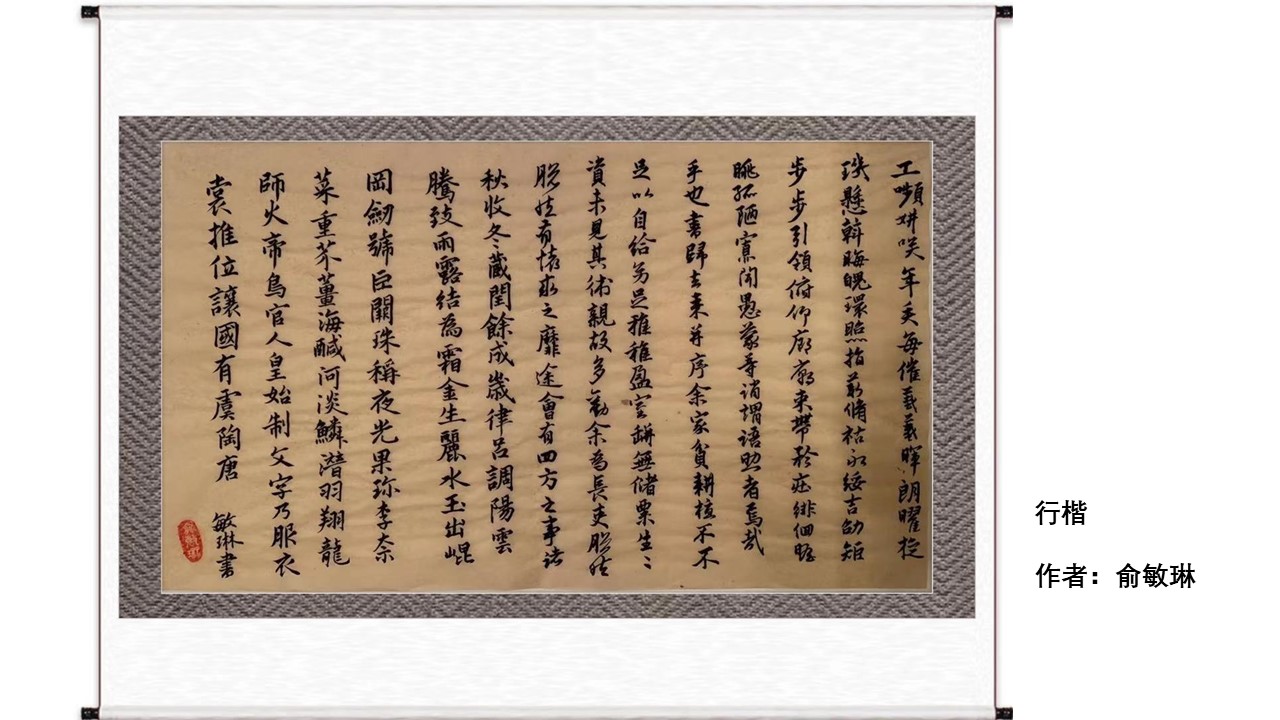 工嚬妍咲年矢每催羲羲暉朗曜旋
璣懸斡晦魄環照指薪脩祜永綏吉劭矩
步步引領俯仰廊廟束帶矜莊徘徊瞻
眺孤陋寡聞愚蒙等誚謂語助者焉哉
乎也書歸去來并序余家貧耕植不不
足以自給足稚稚盈室缾無儲粟生〻
資未見其術親故多勸余為長吏脫然
脫然有懷求之靡途會有四方之事諸
秋收冬藏閏餘成歲律呂調陽雲
騰致雨露結為霜金生麗水玉出崐
岡劒號巨闕珠稱夜光果珍李柰
菜重芥薑海鹹河淡鱗潛羽翔龍
師火帝鳥官人皇始制文字乃服衣
裳推位讓國有虞陶唐
敏琳書
行楷
作者：俞敏琳